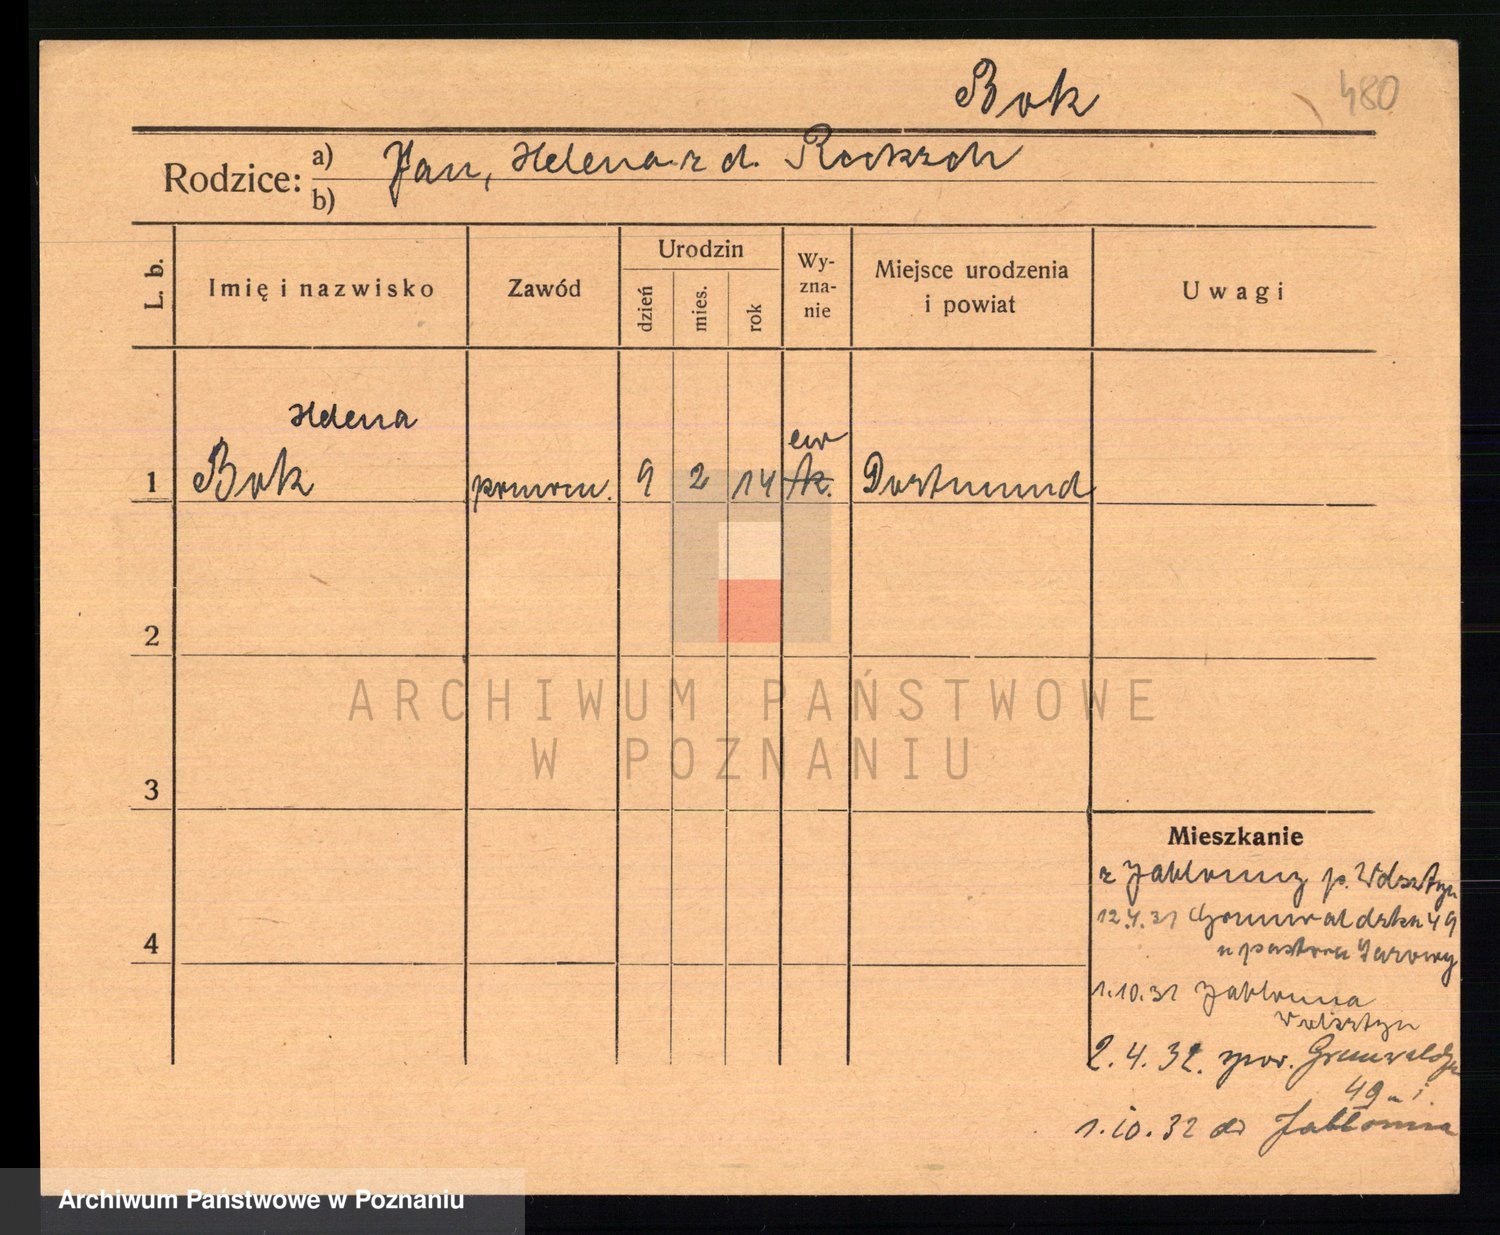 Bok 480
Rodzice: a) Jan, Helena z d.
b)
L. b. Imię i nazwisko Zawód Urodzin dzień mies. rok Wy-zna-nie Miejsce urodzenia i powiat Uwagi
Helena
ew
1 Bok 9 2 14 k. Dortmund
2
ARCHIWUM PAŃSTWOWE
W POZNANIU
3
Mieszkanie
z Jabłonny p. Wolsztyn
12.4.31 Grunwaldzka 49
u pastora
4
1.10.31 Jabłonna
Wolsztyn
2.4.32. Grunwaldzka
49
1.10.32 do Jabłonna
Archiwum Państwowe w Poznaniu